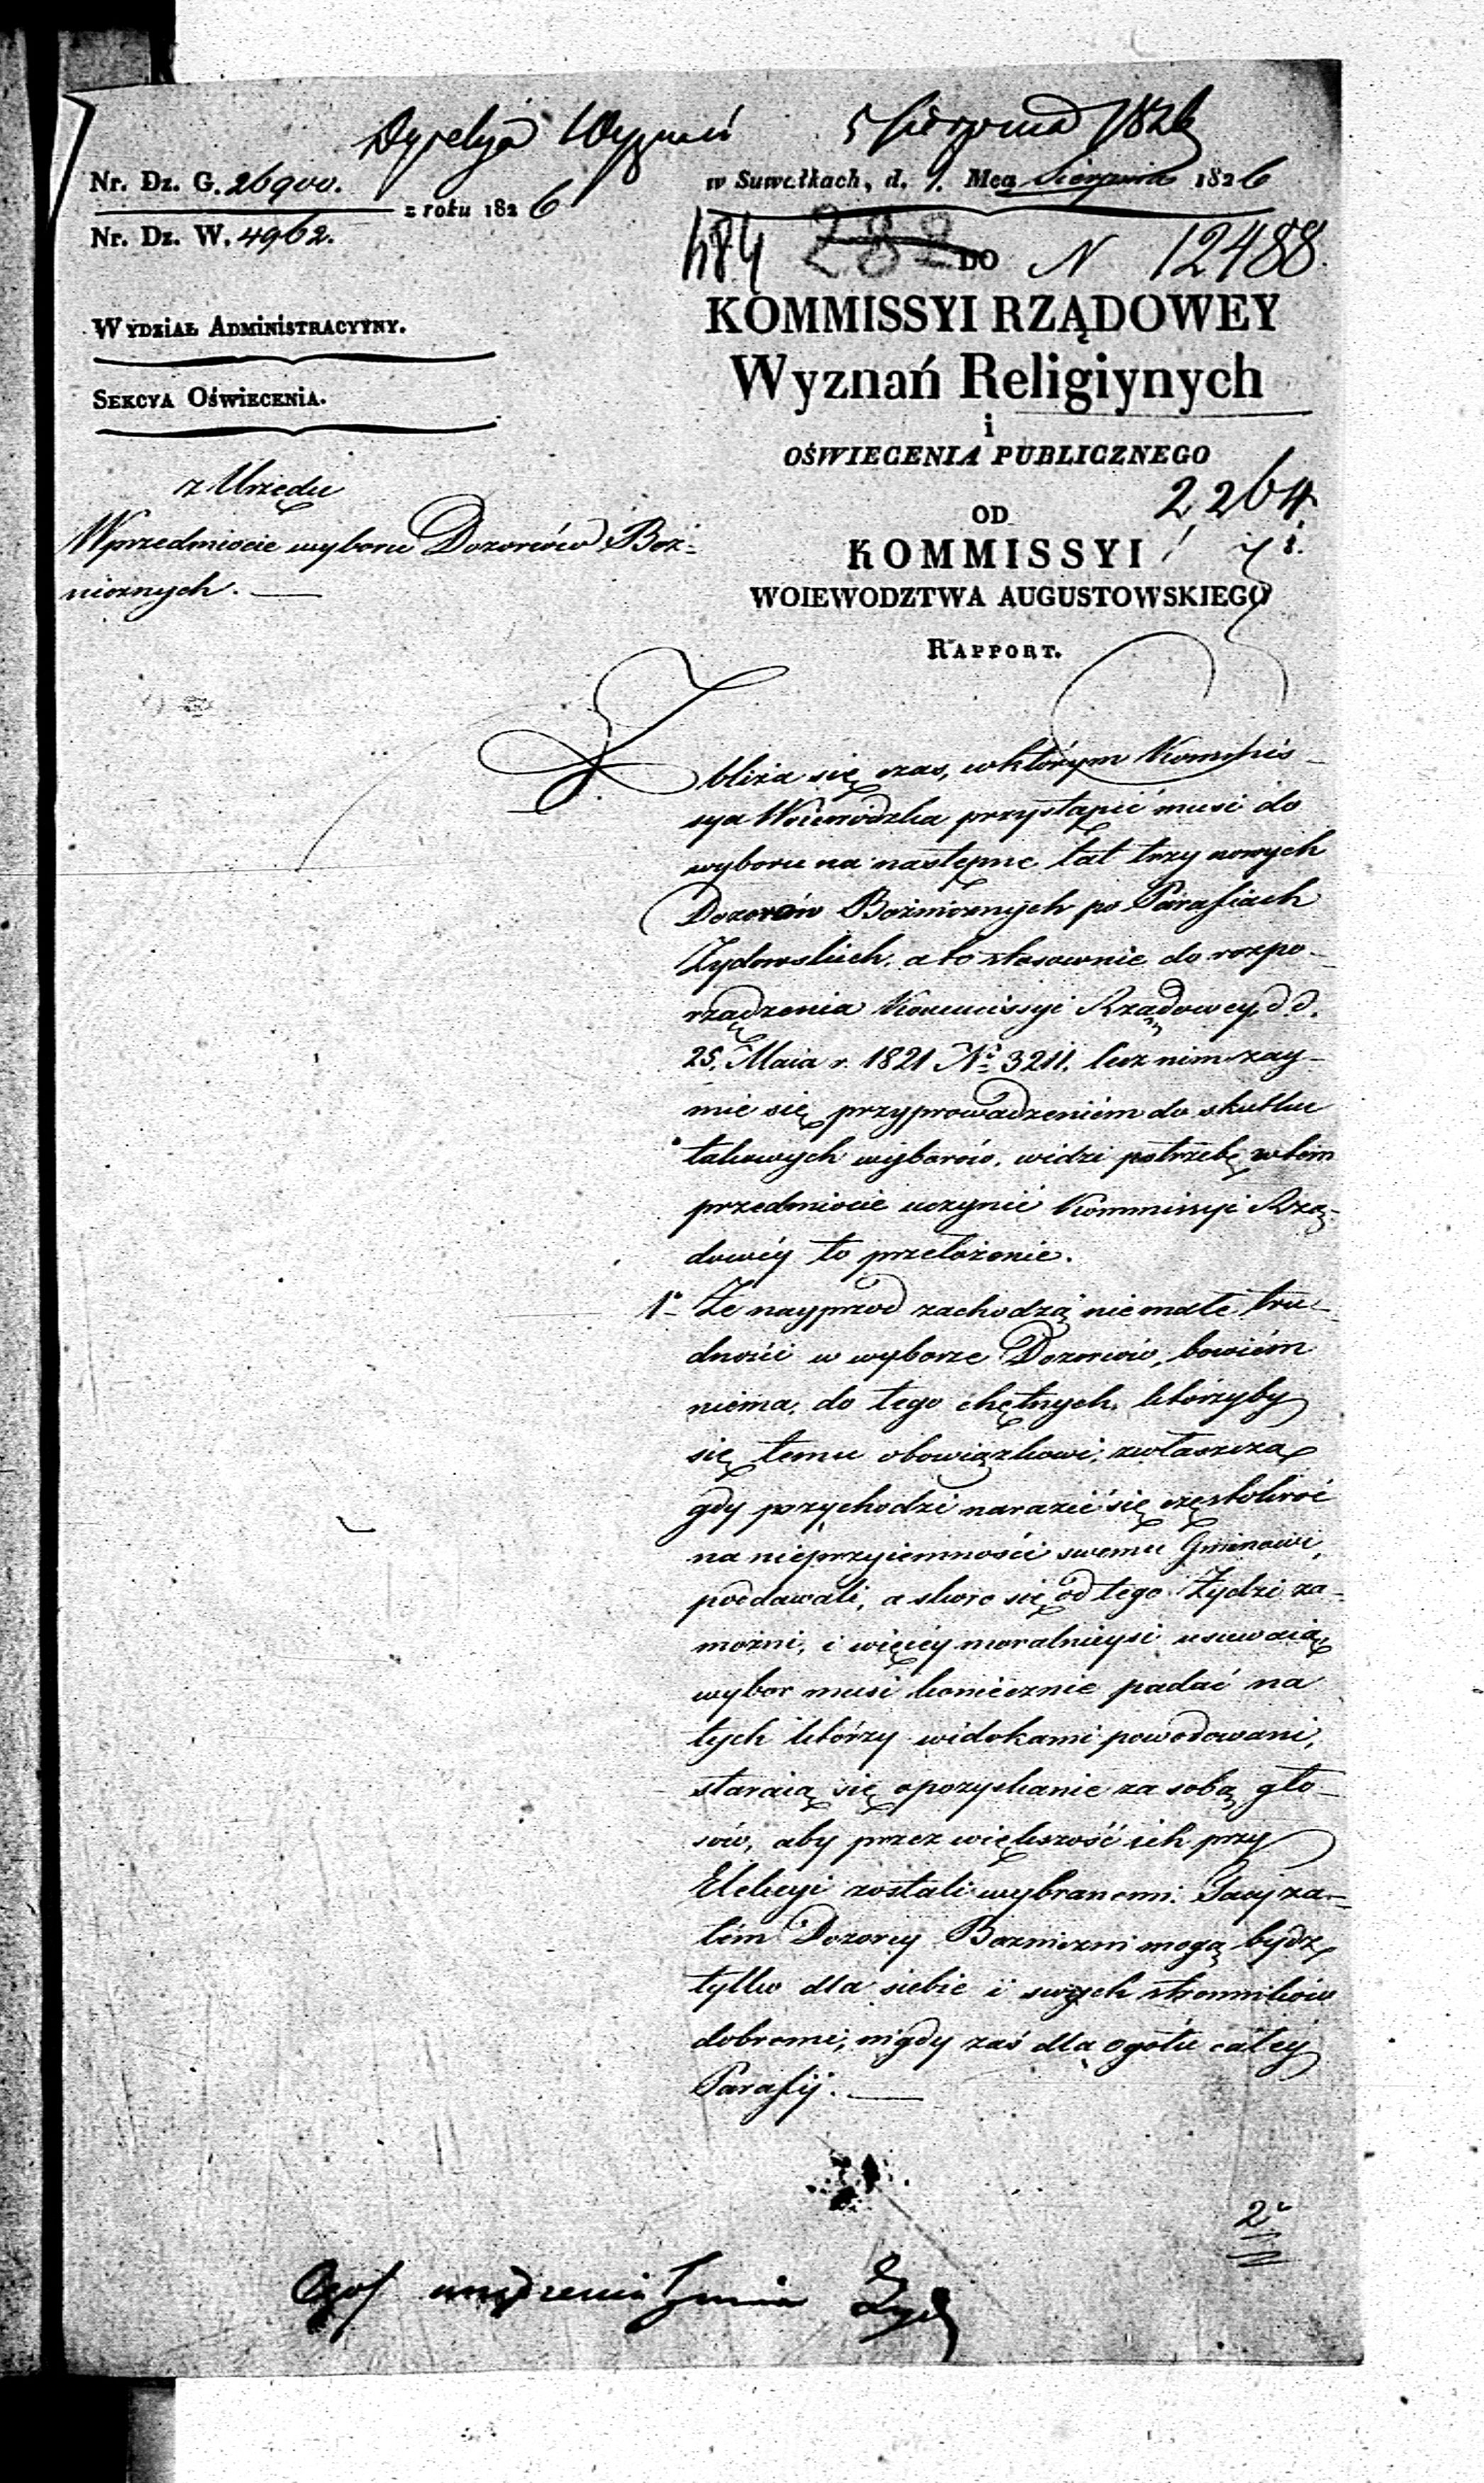 Dyrekcya Wyznań 5 Sierpnia 1826
Nr. Dz. G. 26900.
z roku 1826
Nr. Dz. W. 4962.
w Suwałkach, d. 1. Mca Sierpnia 1826
484 282 N 12488.
DO
KOMMISSYI RZĄDOWEY
Wyznań Religiynych
i
OŚWIECENIA PUBLICZNEGO
2264
OD
KOMMISSYI
WOIEWODZTWA AUGUSTOWSKIEGO
RAPPORT.
WYDZIAŁ ADMINISTRACYYNY.
SEKCYA OŚWIECENIA.
z Urzędu
W przedmiocie wyboru Dozorców Boż-
nicznych.
Zbliża się czas, w którym Kommis-
sya Woiewódzka przystąpić musi do
wyboru na następne lat trzy nowych
Dozorów Bożnicznych po Parafiach
Żydowskich, a to stosownie do rozpo-
rządzenia Kommissyi Rządowey d. d.
25. Maia r. 1821 No 3211. lecz nim zay-
mie się przyprowadzeniem do skutku
takowych wyborów, widzi potrzebę w tem
przedmiocie uczynić Kommissyi Rzą-
dowéy to przełożenie.
1o Że nayprzod zachodzą nie małe tru-
dności w wyborze Dozorców, bowiém
niema, do tego chętnych, którzyby
się temu obowiązkowi, zwłaszcza
gdy przychodzi narazić się częstokroć
na nieprzyiemności swemu Gminowi,
poddawali, a skoro się od tego Żydzi za-
możni, i więcéy moralnieysi usuwaią,
wybor musi koniecznie padać na
tych którzy widokami powodowani,
staraią się o pozyskanie za sobą gło-
sów, aby przez większość ich przy
Elekcyi zostali wybranemi. Tacy za-
tém Dozorcy Bożniczni mogą bydz
tylko dla siebie i swych stronników
dobremi, nigdy zaś dla ogółu całéy
Parafij.
2o
urządzenia Gmin Żyd